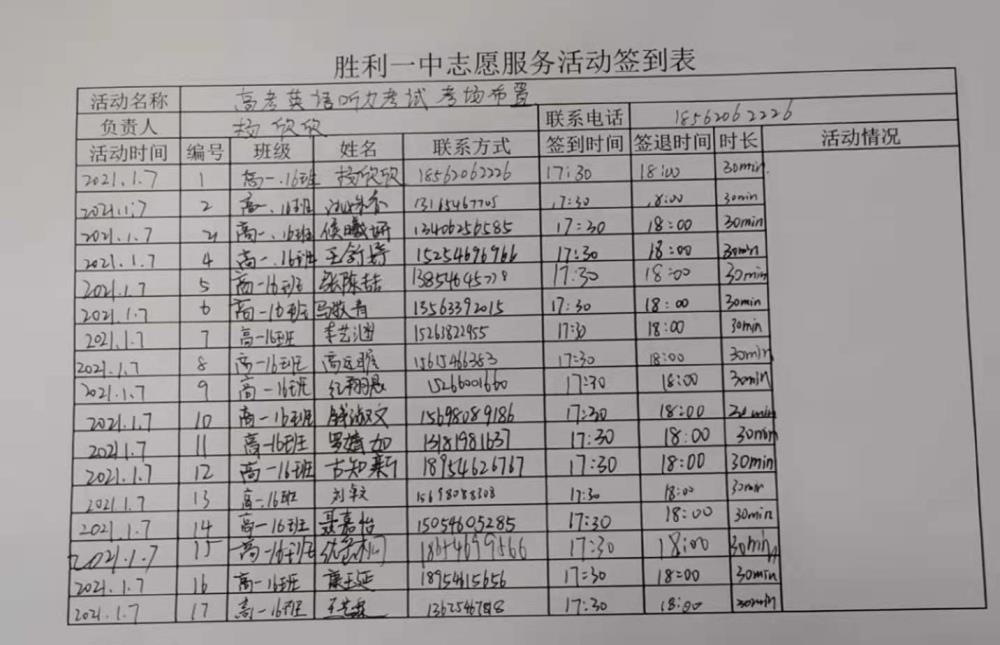 胜利一中志愿服务活动签到表
活动名称 高考英语听力考试考场布置
负责人 杨欣欣 联系电话 18562062226
活动时间 编号 班级 姓名 联系方式 签到时间 签退时间 时长 活动情况
2021.1.7 1 高一.16班 杨欣欣 18562062226 17:30 18:00 30min
2021.1.7 2 高一.16班 13165467705 17:30 18:00 30min
2021.1.7 高一.16班 侯曦妍 13406256585 17:30 18:00 30min
2021.1.7 4 高一.16班 王舒婷 15254696966 17:30 18:00 30min
2021.1.7 5 高一16班 张陈喆 17:30 18:00 30min
2021.1.7 6 高一16班 马敬青 13563392015 17:30 18:00 30min
2021.1.7 7 高一16班 李艺涵 15263822955 17:30 18:00 30min
2021.1.7 8 高一16班 15615466383 17:30 18:00 30min
2021.1.7 9 高一16班 15266001660 17:30 18:00 30min
2021.1.7 10 高一.16班 钱淑文 15698089186 17:30 18:00 30min
2021.1.7 11 高一16班 13181981637 17:30 18:00 30min
2021.1.7 12 高一16班 古知新 18954626767 17:30 18:00 30min
2021.1.7 13 高一.16班 15698088308 17:30 18:00 30min
2021.1.7 14 高一16班 聂嘉怡 15054605285 17:30 18:00 30min
2021.1.7 15 高一16班 17:30 18:00 30min
2021.1.7 16 高一16班 18954615656 17:30 18:00 30min
2021.1.7 17 高一16班 17:30 18:00 30min